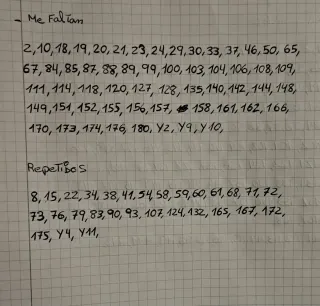 - Me Faltan
2,10,18,19,20,21,23,24,29,30,33,37,46,50,65,
67,84,85,87,88,89,99,100,103,104,106,108,109,
111,114,118,120,127,128,135,140,142,144,148,
149,151,152,155,156,157, 158,161,162,166,
170,173,174,176,180,Y2,Y9,Y10,
Repetidos
8,15,22,34,38,41,54,58,59,60,61,68,71,72,
73,76,79,83,90,93,107,124,132,165,167,172,
175,Y4,Y11,